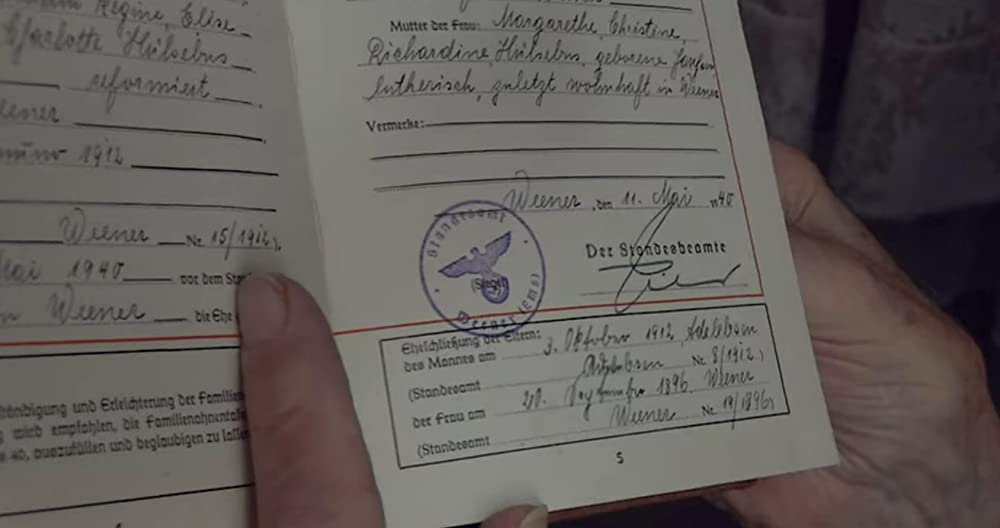 Regine, Elise
Charlotte Hülsebus
reformiert
ener
1912
Weener Nr. 15/1912).
Mai 1940 vor dem
Weener die Ehe
ständigung und Erleichterung der Familien
wird empfohlen, die Familienahnentaf
auszufüllen und beglaubigen zu lassen
Mutter der Frau: Margarethe, Christine,
Richardine Hülsebus, geborene
lutherisch, zuletzt wohnhaft in Weener
Vermerke:
Weener, den 11. Mai 1940
Standesamt
(Siegel)
Weener (Ems)
Der Standesbeamte
Eheschließung der Eltern:
des Mannes am 3. Oktober 1912, Adelebsen
(Standesamt Adelebsen Nr. 8/1912.)
der Frau am 20. 1896 Weener
(Standesamt Weener Nr. 19/1896)
5